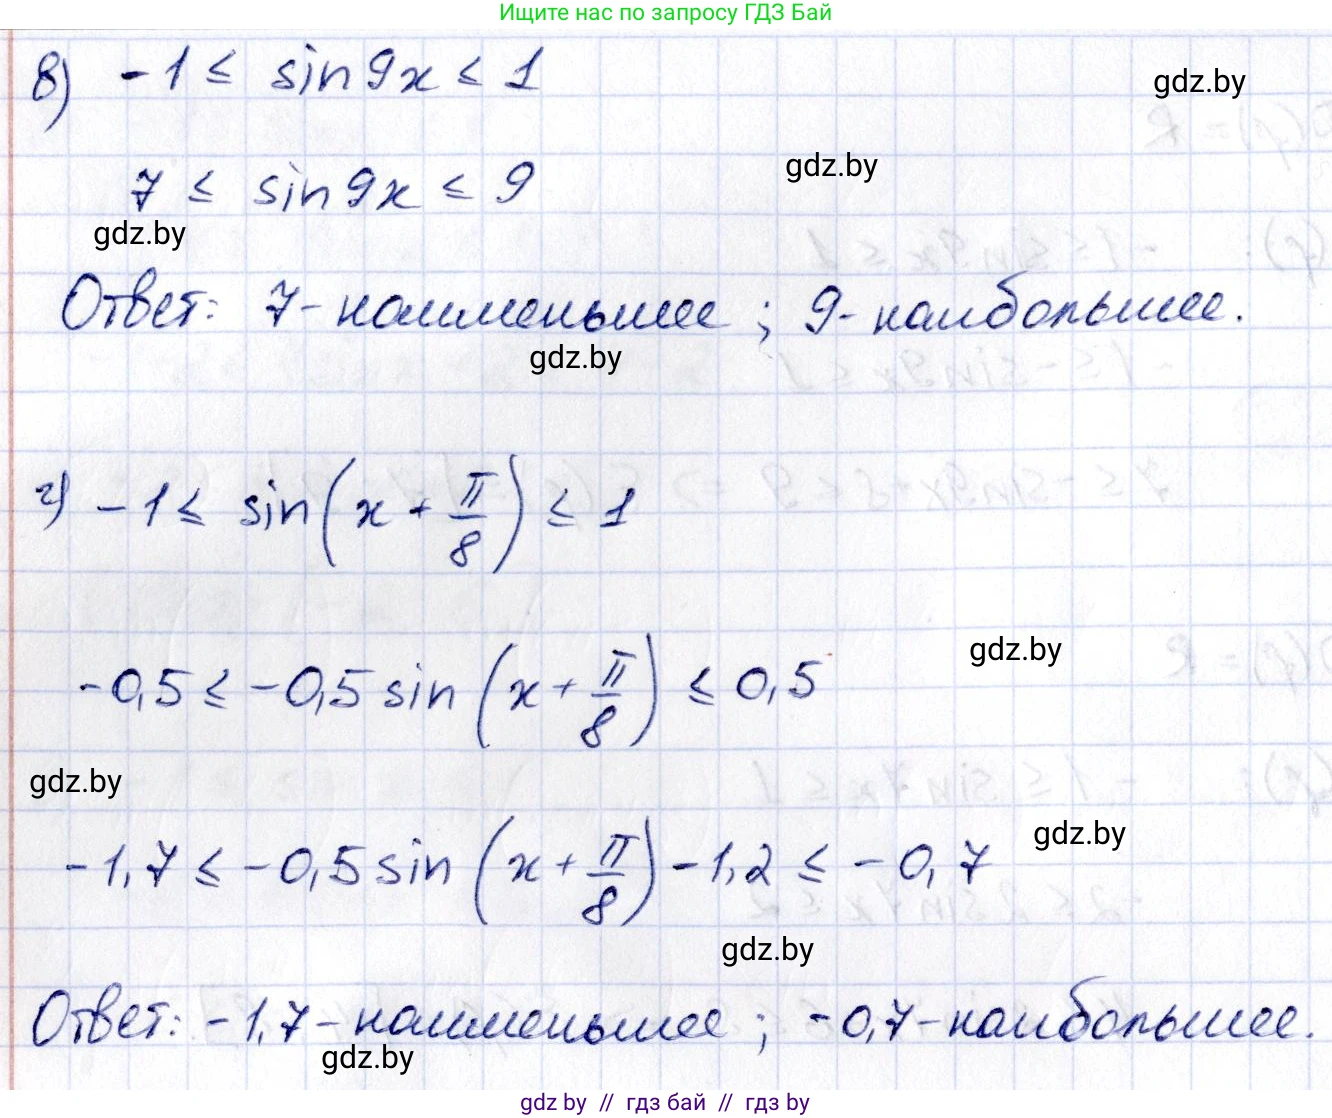 Ищите нас по запросу ГДЗ Бай
в) -1 ≤ sin9x ≤ 1
gdz.by
gdz.by
7 ≤ sin9x ≤ 9
gdz.by
Ответ: 7- наименьшее ; 9- наибольшее.
gdz.by
г) -1 ≤ sin(x + π/8) ≤ 1
gdz.by
-0,5 ≤ -0,5 sin(x + π/8) ≤ 0,5
gdz.by
gdz.by
-1,7 ≤ -0,5 sin(x + π/8) -1,2 ≤ -0,7
gdz.by
Ответ: -1,7- наименьшее ; -0,7- наибольшее.
gdz.by
gdz by // гдз бай // гдз by